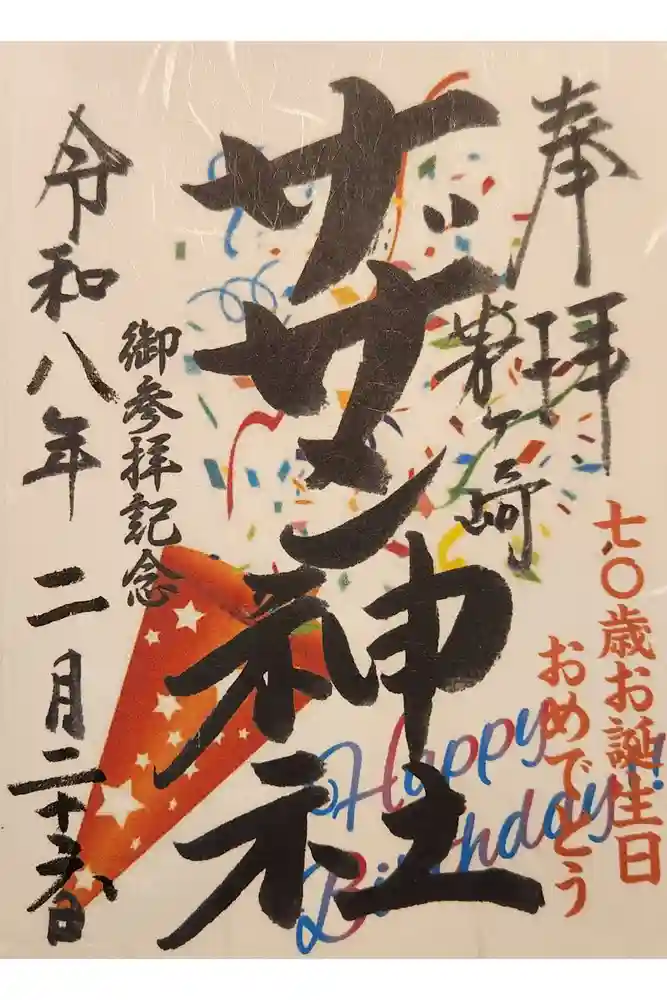 奉拝
茅ケ崎
七〇歳お誕生日
おめでとう
サザン神社
御参拝記念
令和八年 二月二十六日
Happy
Birthday!!